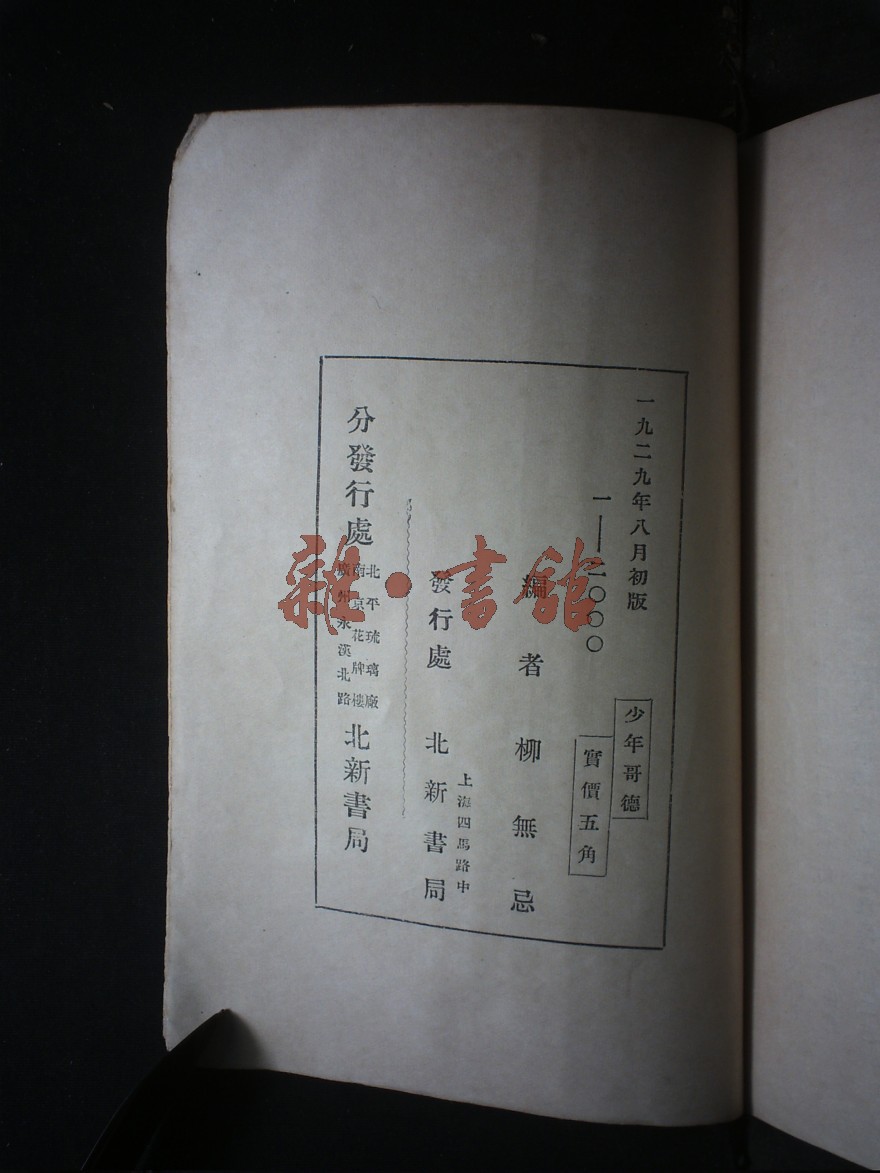 一九二九年八月初版
少年哥德
一——二〇〇〇
實價五角
編者 柳無忌
上海四馬路中
發行處 北新書局
分發行處
北平琉璃廠
南京花牌樓
廣州永漢北路
北新書局
雜·書館